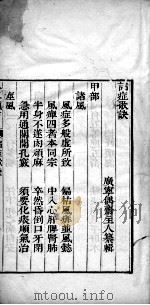 討症歌訣
廣寧偶齋主人纂輯
甲部
諸風
風症多般虛所致　偏枯風痱並風懿
風痹四者本同宗　中入心肝脾腎肺
半身不遂肉頑麻　卒然昏倒口牙閉
急用通關開孔竅　須要化痰順氣治